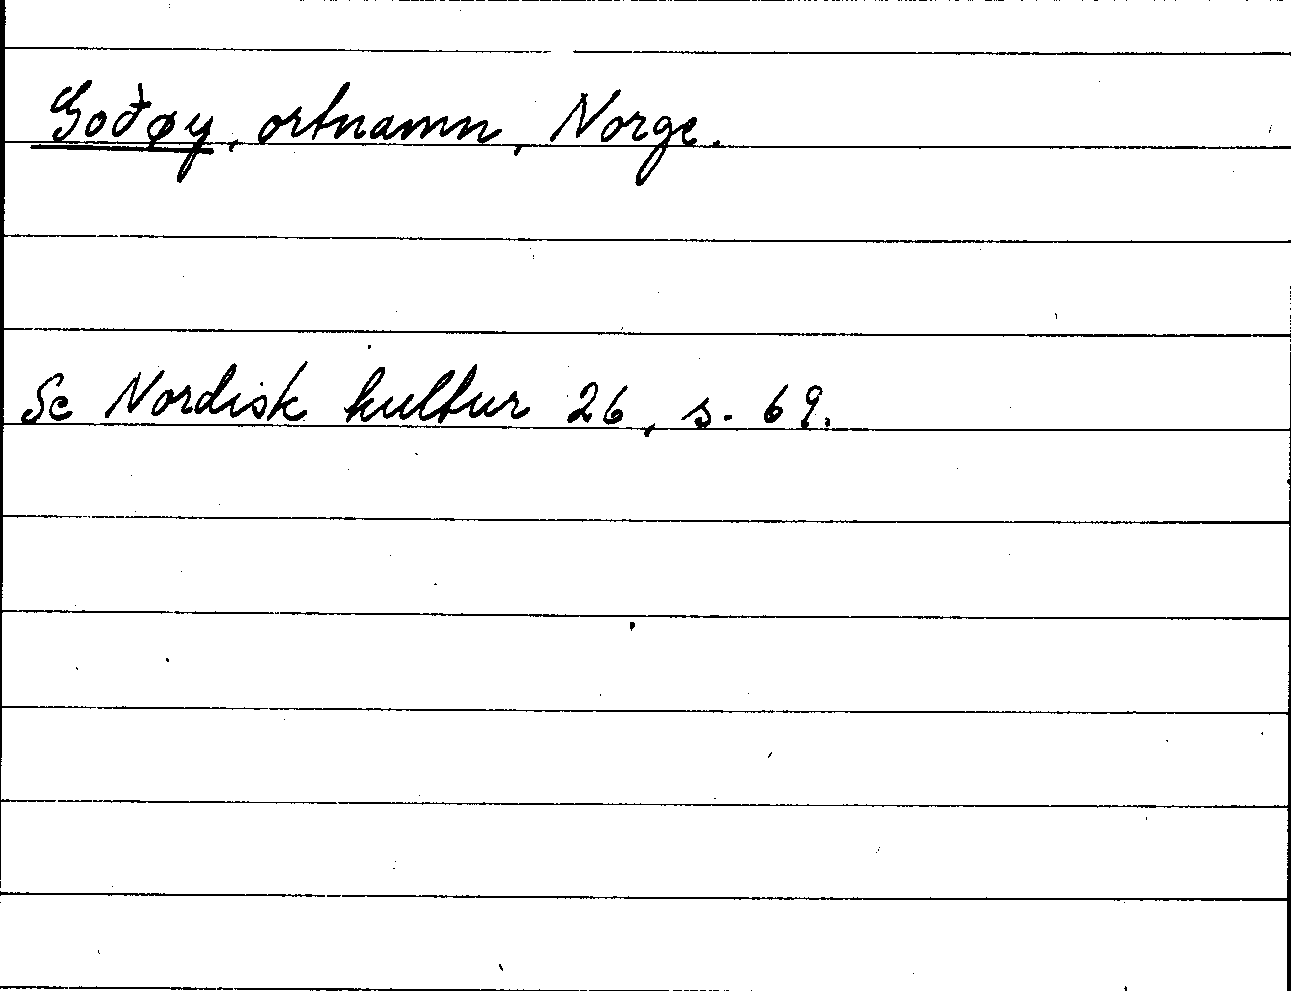 Goðøy, ortnamn, Norge.
Se Nordisk kultur 26, s. 69.